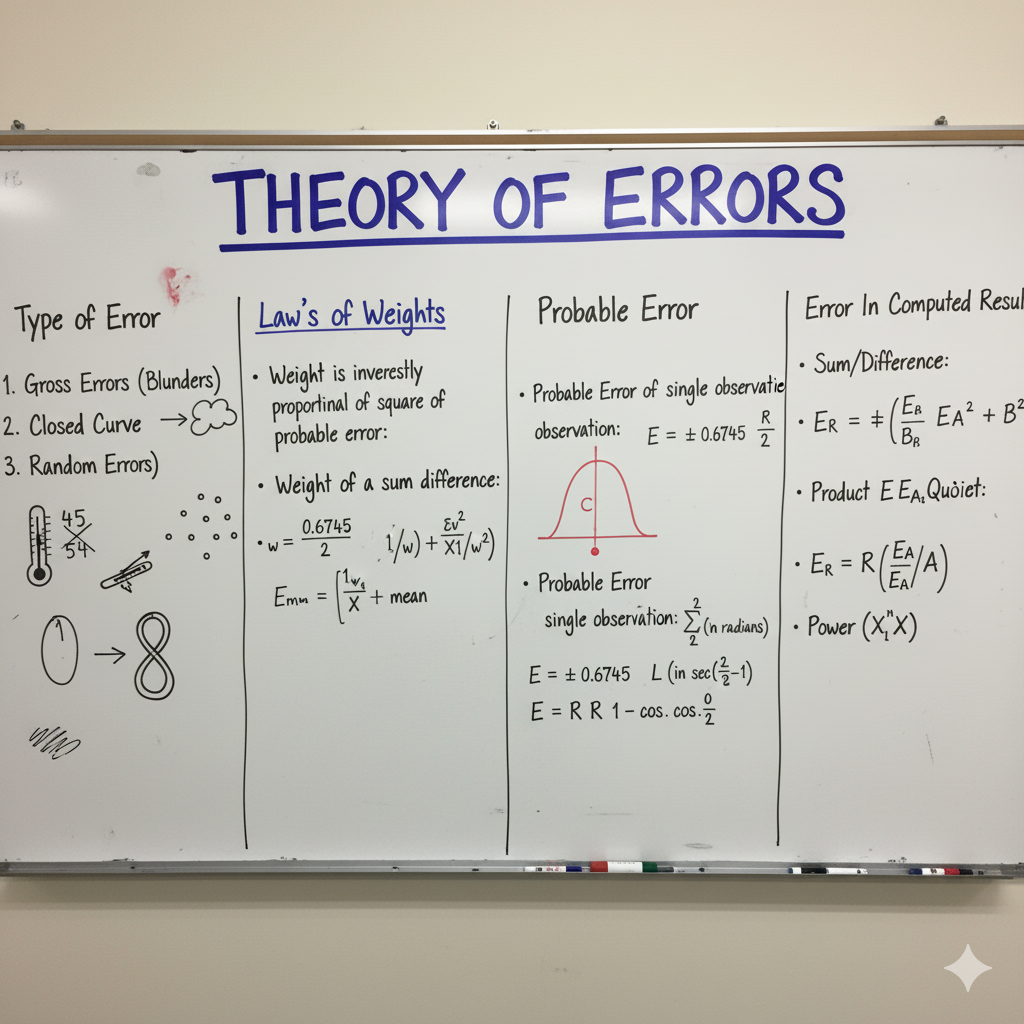 THEORY OF ERRORS
Type of Error
1. Gross Errors (Blunders)
2. Closed Curve
3. Random Errors)
45
54
Law's of Weights
• Weight is inverestly
proportinal of square of
probable error:
• Weight of a sum difference:
• w = 0.6745/2 1/w) + Σv²/X1/w²)
= + mean
Probable Error
• Probable Error of single observatie
observation: E = ± 0.6745 R/2
C
• Probable Error
single observation: 2 Σ 2 (n radians)
E = ± 0.6745 L (in sec(2/2-1)
E = R R 1 - cos. cos. 0/2
Error In Computed Resul
• Sum/Difference:
• E_R = ‡ (E_R/B_R EA² + B²
• Product E E_A, Quòiet:
• E_R = R(E_A/E_A/A)
• Power (X₁ⁿX)